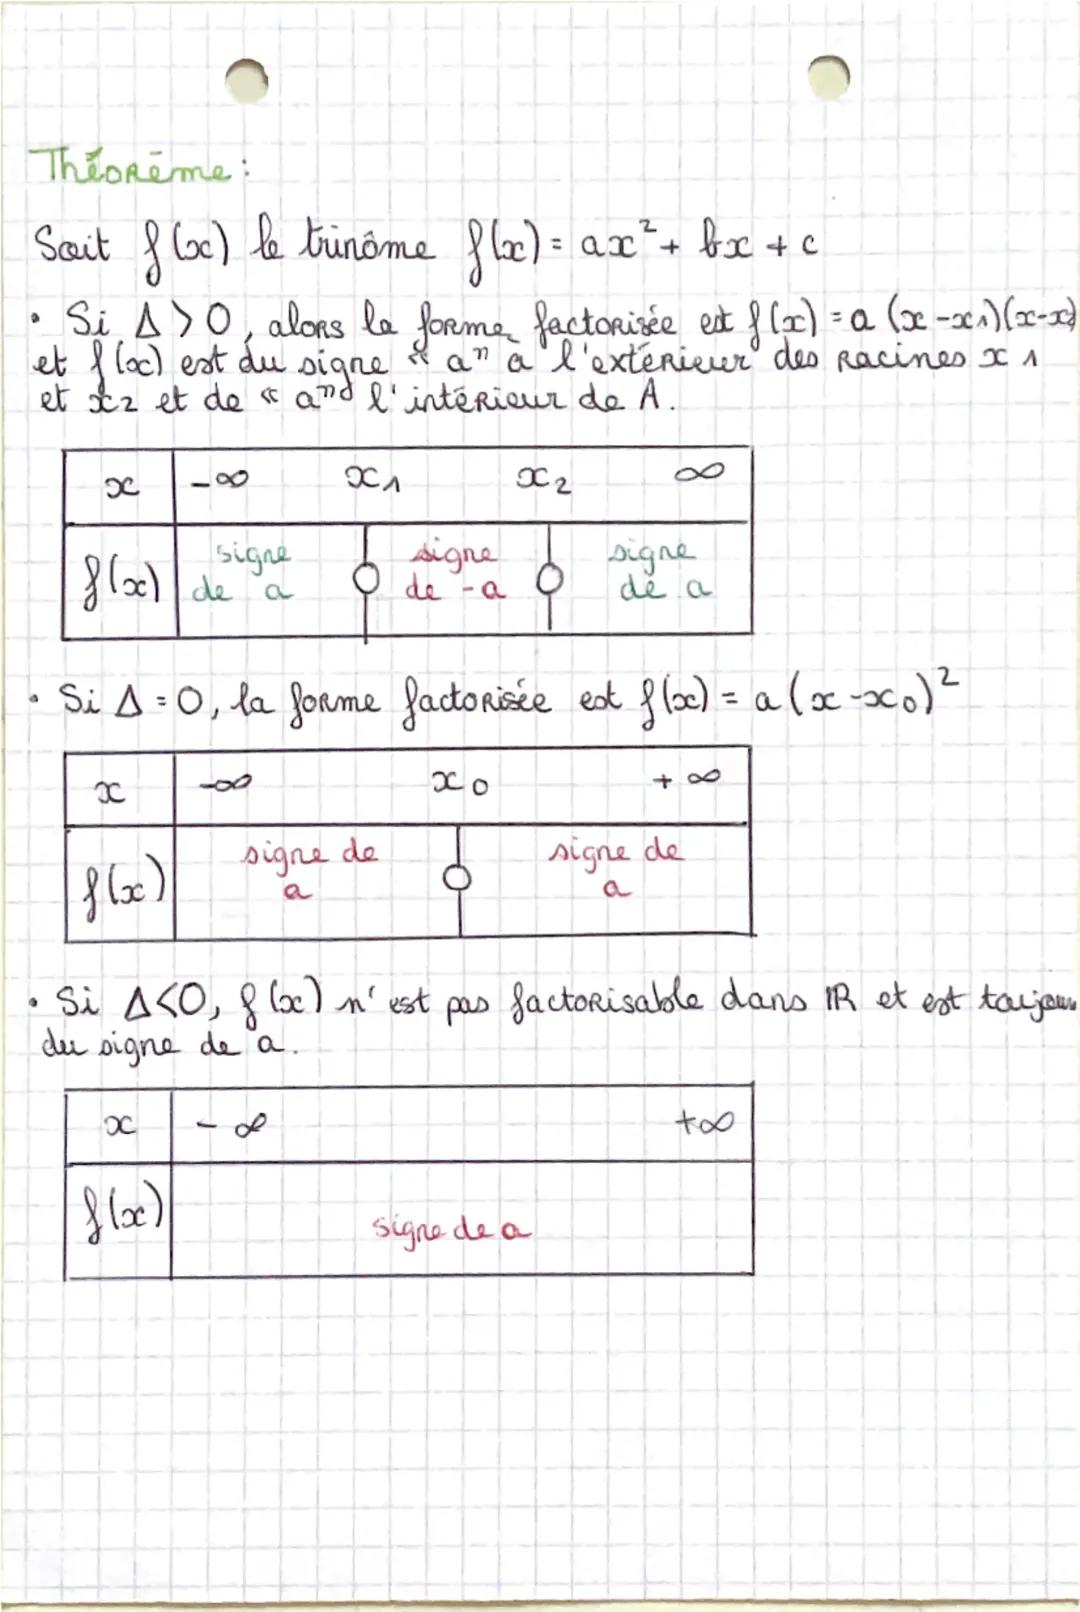 Théorème :
Soit f(x) le trinôme f(x) = ax² + bx + c
• Si Δ > 0, alors la forme factorisée est f(x) = a (x - x1)(x - x
et f(x) est du signe « a " à l'extérieur des racines x 1
et x2 et de « a " à l'intérieur de A.
x -∞ x1 x2 ∞
f(x) signe de a signe de -a signe de a
• Si Δ = 0, la forme factorisée est f(x) = a (x - x0)²
x -∞ x0 + ∞
f(x) signe de a signe de a
• Si Δ < 0, f(x) n'est pas factorisable dans IR et est toujours
du signe de a.
x - ∞ +∞
f(x) signe de a